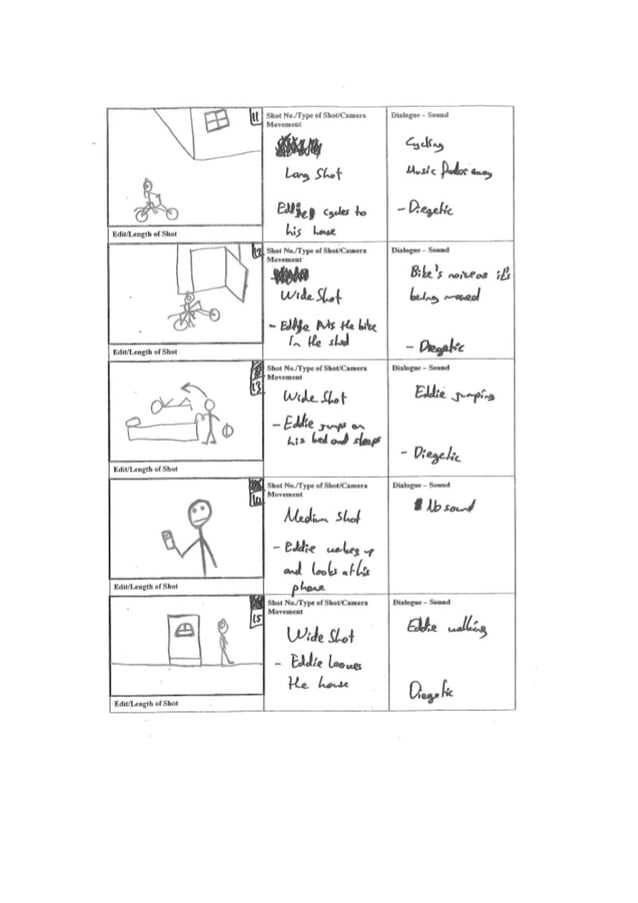 11
Shot No./Type of Shot/Camera
Movement
Dialogue – Sound
Long Shot
Eddie cycles to
his house
Cycling
Music fades away
- Diegetic
Edit/Length of Shot
12
Shot No./Type of Shot/Camera
Movement
Dialogue – Sound
Wide Shot
- Eddie Puts the bike
in the shed
Bike's noise as it's
being moved
- Diegetic
Edit/Length of Shot
13
Shot No./Type of Shot/Camera
Movement
Dialogue – Sound
Wide Shot
- Eddie jumps on
his bed and sleeps
Eddie jumping
- Diegetic
Edit/Length of Shot
14
Shot No./Type of Shot/Camera
Movement
Dialogue – Sound
Medium Shot
- Eddie wakes up
and looks at his
phone
No sound
Edit/Length of Shot
15
Shot No./Type of Shot/Camera
Movement
Dialogue – Sound
Wide Shot
- Eddie leaves
the house
Eddie walking
Diegetic
Edit/Length of Shot